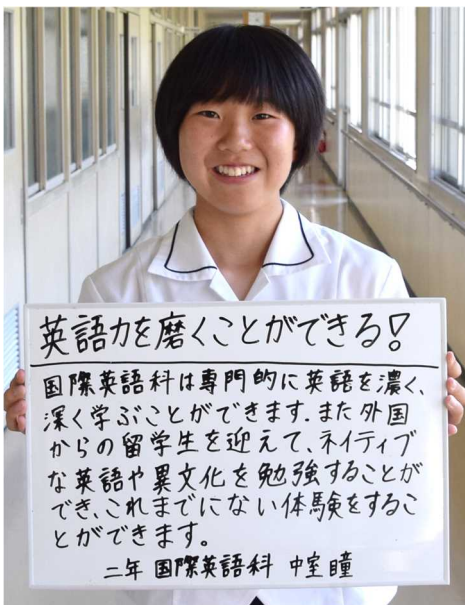 英語力を磨くことができる!
国際英語科は専門的に英語を濃く、
深く学ぶことができます.また外国
からの留学生を迎えて、ネイティブ
な英語や異文化を勉強することが
でき、これまでにない体験をするこ
とができます。
二年 国際英語科 中室 瞳